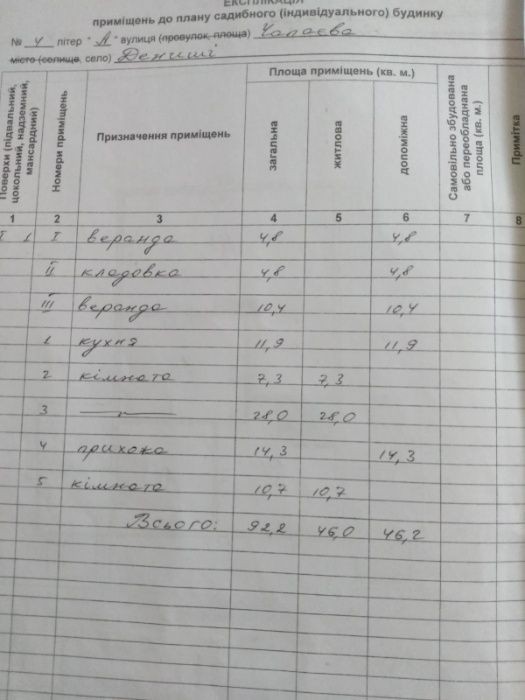 ЕКСПЛІКАЦІЯ
приміщень до плану садибного (індивідуального) будинку
№ 4 літер "А" вулиця (провулок, площа) Чапаєва
місто (селище, село) Дениші
Поверхи (підвальний, цокольний, надземний, мансардний) Номери приміщень Призначення приміщень Площа приміщень (кв. м.) загальна житлова допоміжна Самовільно збудована або переобладнана площа (кв. м.) Примітка
1 2 3 4 5 6 7 8
1 I веранда 4,8 4,8
II кладовка 4,8 4,8
III веранда 10,4 10,4
1 кухня 11,9 11,9
2 кімната 7,3 7,3
3 —〃— 28,0 28,0
4 прихожа 14,3 14,3
5 кімната 10,7 10,7
Всього: 92,2 46,0 46,2